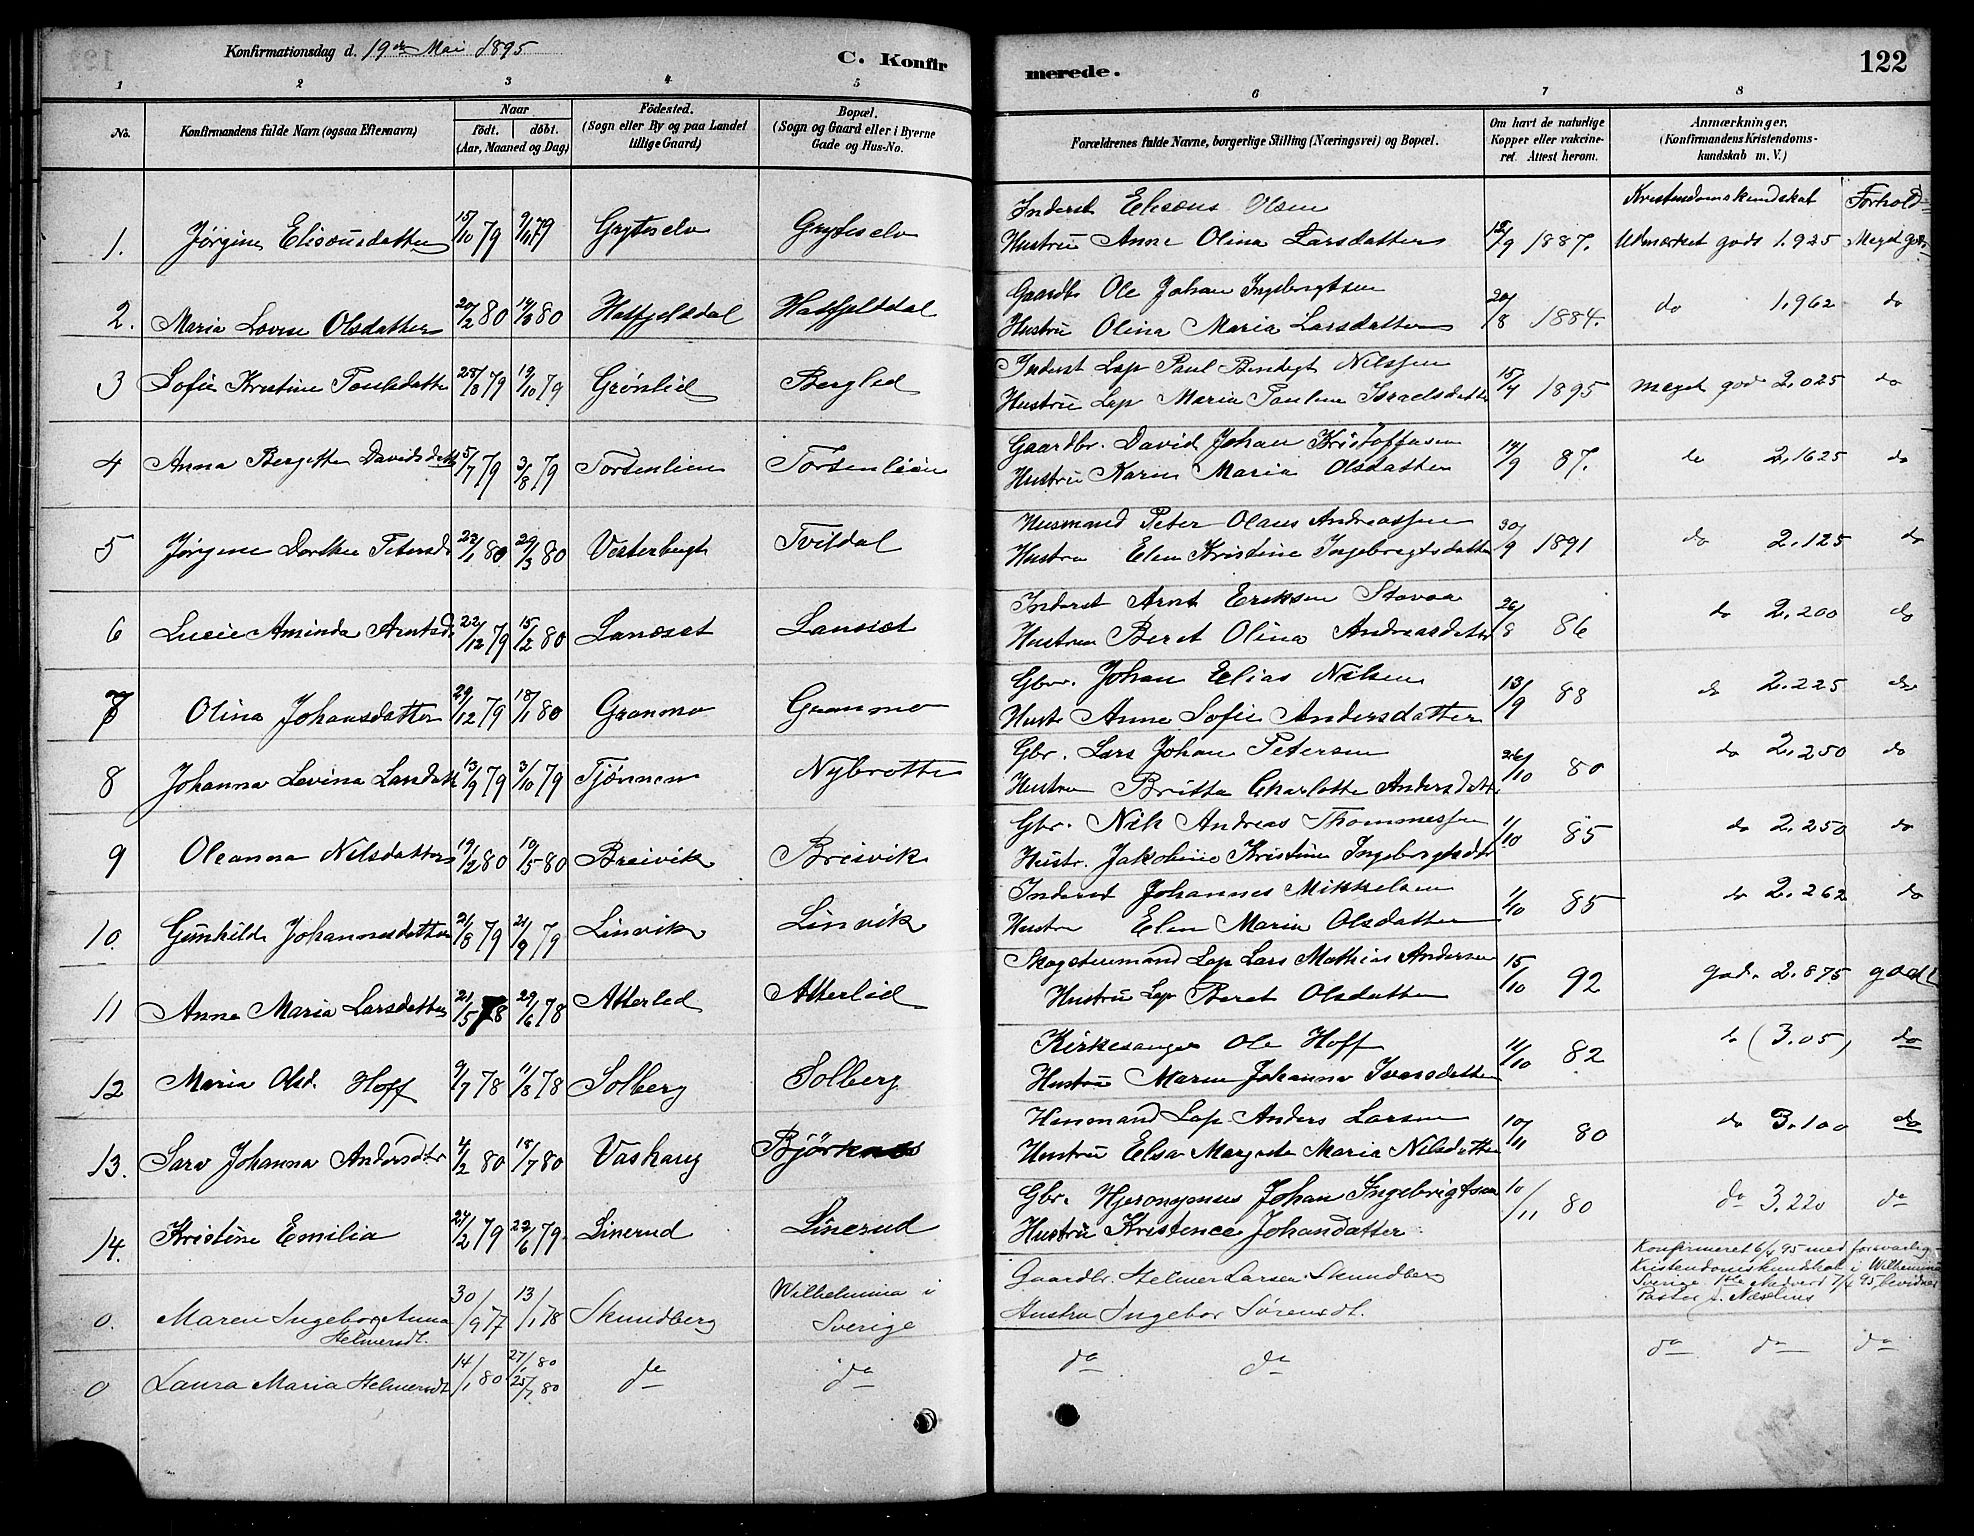 Konfirmationsdag d. 19de Mai 1895
C. Konfirmerede. 122
1 2 3 4 5 6 7 8
No. Konfirmandens fulde Navn (ogsaa Efternavn) Naar födt. döbt. (Aar, Maaned og Dag) Födested. (Sogn eller By og paa Landet tillige Gaard) Bopæl. (Sogn og Gaard eller i Byerne Gade og Hus-No. Forældrenes fulde Navne, borgerlige Stilling (Næringsvei) og Bopæl. Om havt de naturlige Kopper eller vakcineret. Attest herom. Anmærkninger, (Konfirmandens Kristendomskundskab m. V.)
Kristendomskundskab Forhold
1. Jørgine Elisæusdatter 15/10 79 9/11 79 Gryteselv Gryteselv Inderst Elisæus Olsen
Hustru Anne Olina Larsdatter 12/9 1887. Udmærket godt 1.925 Meget godt
2. Maria Lovise Olsdatter 20/2 80 14/3 80 Hatfjeldal Hatfjelddal Gaardbr Ole Johan Ingebrigtsen
Hustru Olina Maria Larsdatter 20/8 1884. do 1.962 do
3 Sofie Kristine Paulsdatter 28/8 79 19/10 79 Grønlid Berglid Inderst Lap Paul Bendigt Nilssen
Hustru Lap Maria Pauline Israelsdatter 15/4 1895 meget god 2.025 do
4 Anna Bergitte Davidsdatt 5/7 79 3/8 79 Torsenlien Torsenlien Gaardbr. David Johan Kristoffersen
Hustru Karen Maria Olsdatter 14/9 87. do 2.1625 do
5 Jørgine Dorthea Petersd 22/1 80 29/3 80 Vesterbugt Tvildal Husmand Peter Olaus Andreassen
Hustru Elen Kristine Ingebrigtsdatter 30/9 1891 do 2.125 do
6 Lucie Aminda Arntsd. 22/12 79 15/2 80 Lanæset Lanæset Inderst Arnt Eriksen Stavaa
Hustru Beret Olina Andreasdatter 26/8 86 do 2.200 do
7 Olina Johansdatter 29/12 79 18/1 80 Granmo Granmo Gbr. Johan Elias Nilsen
Hustr Anne Sofie Andersdatter 13/9 88 do 2.225 do
8 Johanna Levina Larsdatt 13/9 79 3/10 79 Tjønnem Nybrotte Gbr. Lars Johan Petersen
Hustru Britta Charlotte Andersdatt. 26/10 80 do 2.250 do
9 Oleanna Nilsdatter 19/2 80 10/5 80 Breivik Breivik Gbr. Nils Andreas Thommessen
Hustr. Jakobine Kristine Ingebrigtsdtr 1/10 85 do 2.250 do
10. Gunhilde Johannesdatter 21/8 79 21/9 79 Linvik Linvik Inderst Johannes Mikkelsen
Hustru Elen Maria Olsdatter 1/10 85 do 2.262 do
11 Anne Maria Larsdatter 21/5 78 29/6 78 Atterlid Atterlid Lap Lars Mathias Andersen
Hustru Lap Beret Olsdatter 15/10 92 god. 2.875 godt
12 Maria Olsd. Hoff 9/7 78 11/8 78 Solberg Solberg Kirkesanger Ole Hoff
Hustru Maren Johanna Ivarsdatter 11/10 82 do (3.05) do
13. Sara Johanna Andersdtr 4/2 80 18/7 80 Vashaug Björknes Husmand Lap Anders Larsen
Hustru Elsa Margrete Maria Nilsdatter 10/11 80 do 3.100 do
14. Kristine Emilia 24/2 79 22/6 79. Linerud Linerud Gbr. Hjeronymus Johan Ingebrigtsen
Hustru Kristence Johandatter 10/11 80 do 3.220 do
0. Maren Ingeborg Anna
Helmersdt. 30/9 77 13/1 78 Skundberg Wilhelmina i
Sverige Gaardbr. Helmer Larsen Skundberg
Hustru Ingebor Sörensdt. Konfirmeret 6/4 95 med forsvarlig
Kristendomskundskab i Wilhelmina
Sverige 7/4 95 bevidner
Pastor J. Næslins
0 Laura Maria Helmersdt 14/1 80 27/1 80
25/7 80 do do do do do do do